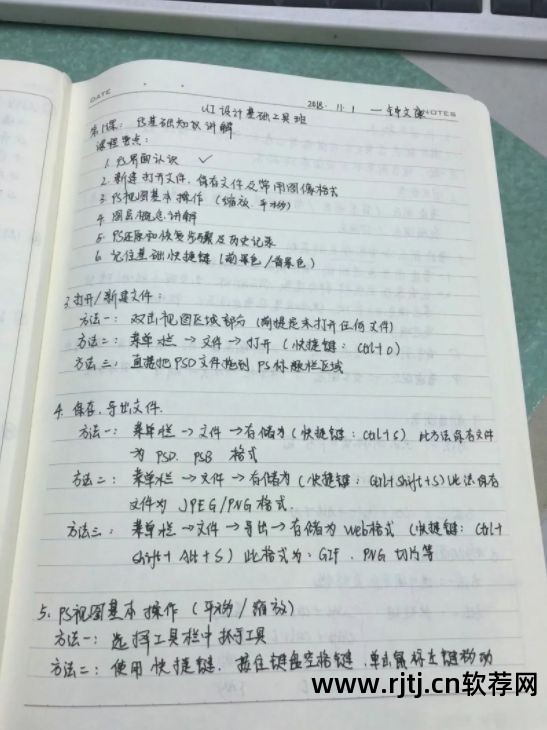 DATE
2018. 11. 1
NOTES
UI设计基础工具班
第1课: PS基础知识讲解
课程要点:
1. PS界面认识 ✓
2. 新建打开文件, 保存文件及常用图像格式
3. PS视图基本操作 (缩放、平移)
4. 图层概念讲解
5. PS还原和恢复步骤及历史记录
6. 记住基础快捷键 (前景色/背景色)
3. 打开/新建文件:
方法一: 双击视图区域部分 (前提是未打开任何文件)
方法二: 菜单栏 → 文件 → 打开 (快捷键: Ctrl+O)
方法三: 直接把PSD文件拖到PS标题栏区域
4. 保存, 导出文件.
方法一: 菜单栏 → 文件 → 存储为 (快捷键: Ctrl+S) 此方法保存文件
为 PSD. PSB 格式
方法二: 菜单栏 → 文件 → 存储为 (快捷键: Ctrl+Shift+S) 此法保存
文件为 JPEG/PNG格式.
方法三: 菜单栏 → 文件 → 导出 → 存储为Web格式 (快捷键: Ctrl+
Shift+Alt+S) 此格式为: GIF. PNG 切片等
5. PS视图基本操作 (平移/缩放)
方法一: 选择工具栏中抓手工具
方法二: 使用快捷键. 按住键盘空格键, 单击鼠标左键移动
www.rjtj.cn软荐网